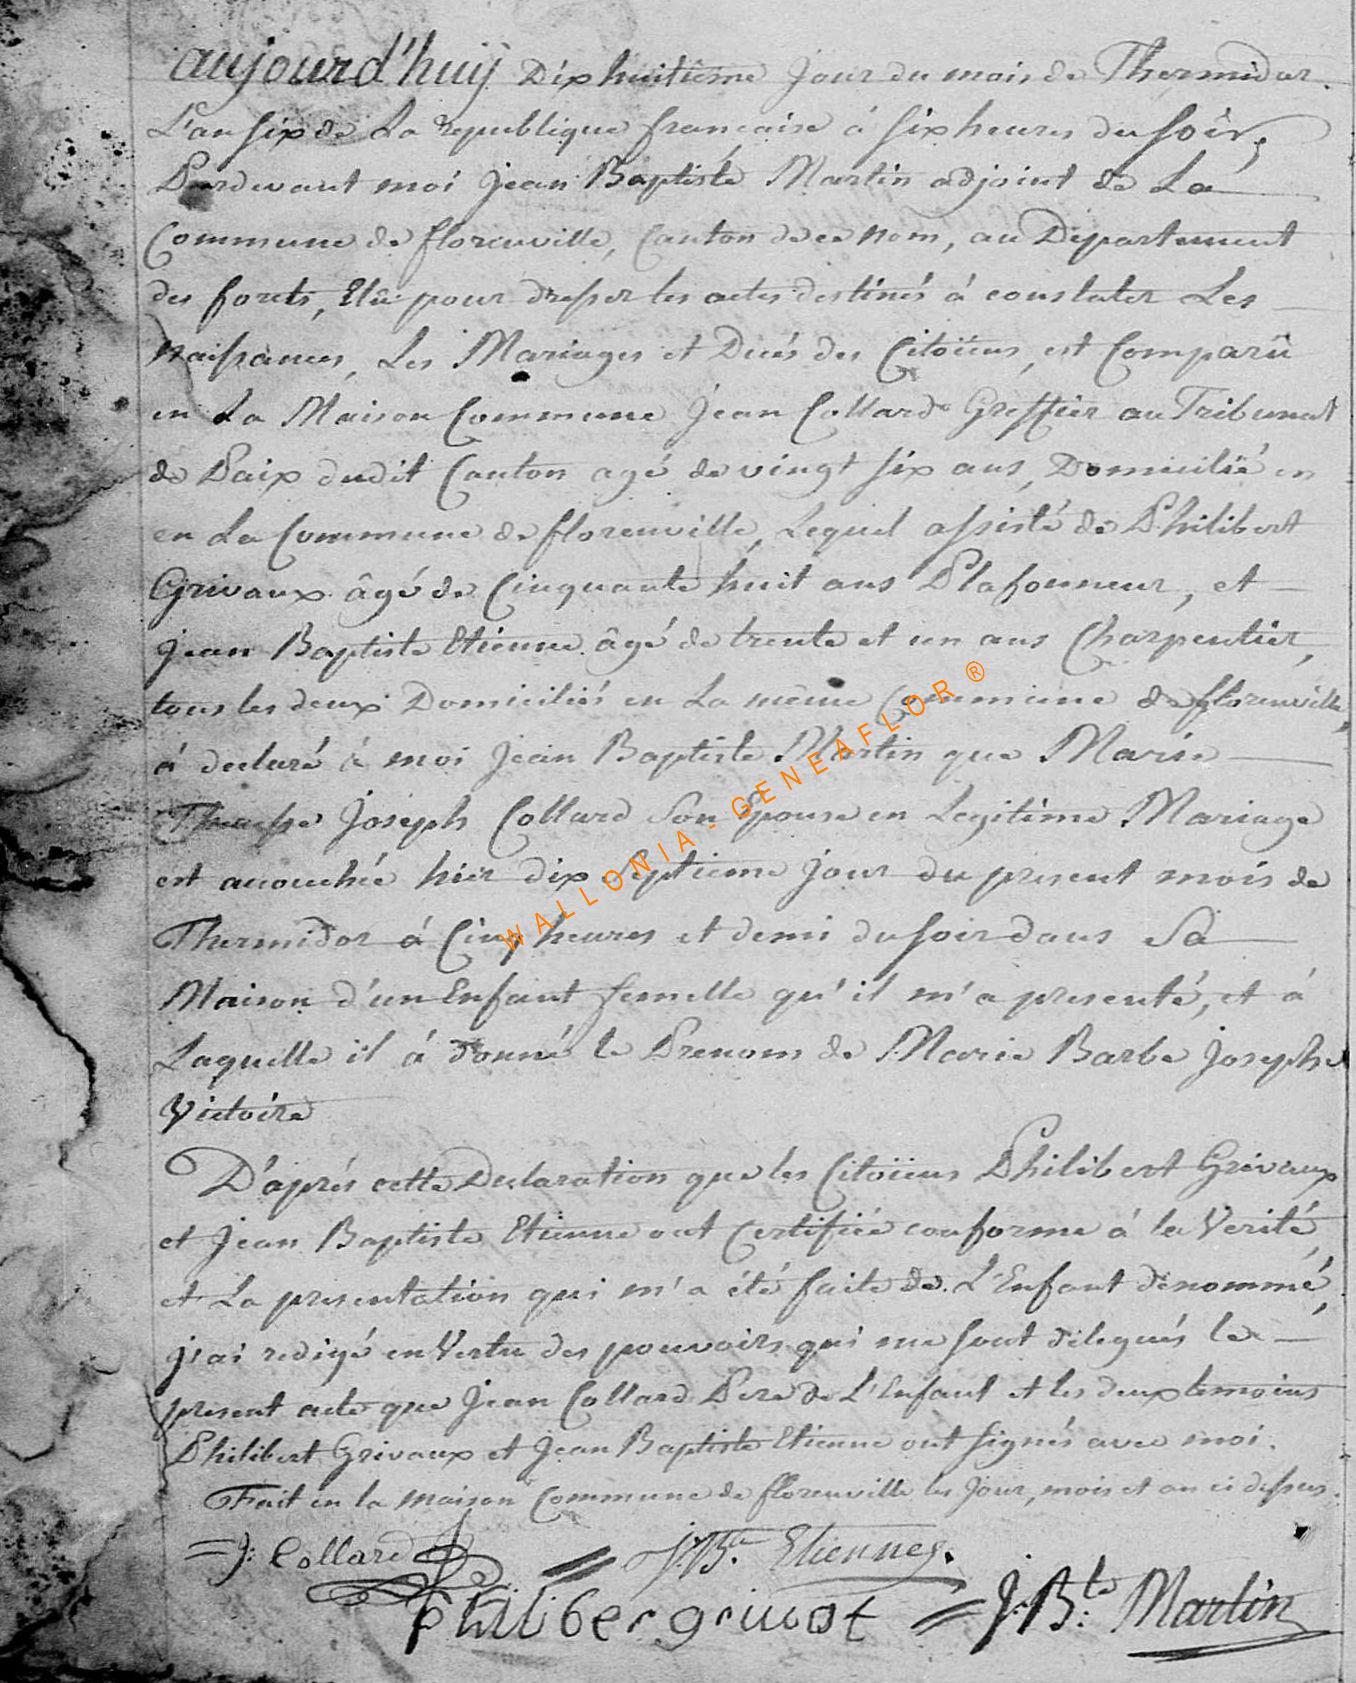 aujourd'huÿ Dix huitième jour du mois de Thermidor
L'an six de La republique francaise à six heures du soir,
Pardevant moi Jean Baptiste Martin adjoint de La
Commune de florenville, Canton de ce nom, au Département
des forets, Elû pour dresser les actes destinés à constater Les
naissances, Les Mariages et Decés des Citoïens, est Comparû
en La Maison Commune Jean Collard Greffier au Tribunal
de Paix dudit Canton agé de vingt six ans, Domicilié en
en La Commune de florenville, Lequel assisté de Philibert
Grivaux âgé de Cinquante huit ans Plafonneur, et
Jean Baptiste Etienne âgé de trente et un ans Charpentier,
tous les deux Domiciliés en La même Commune de florenville,
à declaré à moi Jean Baptiste Martin que Marie
Joseph Collard son Epouse en Legitime Mariage
est accouchée hier dix septieme jour du present mois de
Thermidor à Cinq heures et demi du soir dans Sa
Maison d'un Enfant femelle qu'il m'a presenté, et à
Laquelle il à donné le Prenom de Marie Barbe Josephe
Victoire
D'aprés cette Declaration que les Citoïens Philibert Grivaux
et Jean Baptiste Etienne ont Certifiée conforme à la Verité,
et La presentation qui m'a été faite de L'Enfant dénommé,
j'ai redigé en Vertu des pouvoirs qui me sont délegués le
present acte que Jean Collard Pere de L'Enfant et les deux temoins
Philibert Grivaux et Jean Baptiste Etienne ont signés avec moi.
Fait en la maison Commune de florenville les Jour, mois et an ci dessus.
J: Collard J: Bte. Etienne
philiber grivot J: Bte: Martin
WALLONIA - GENEAFLOR ®